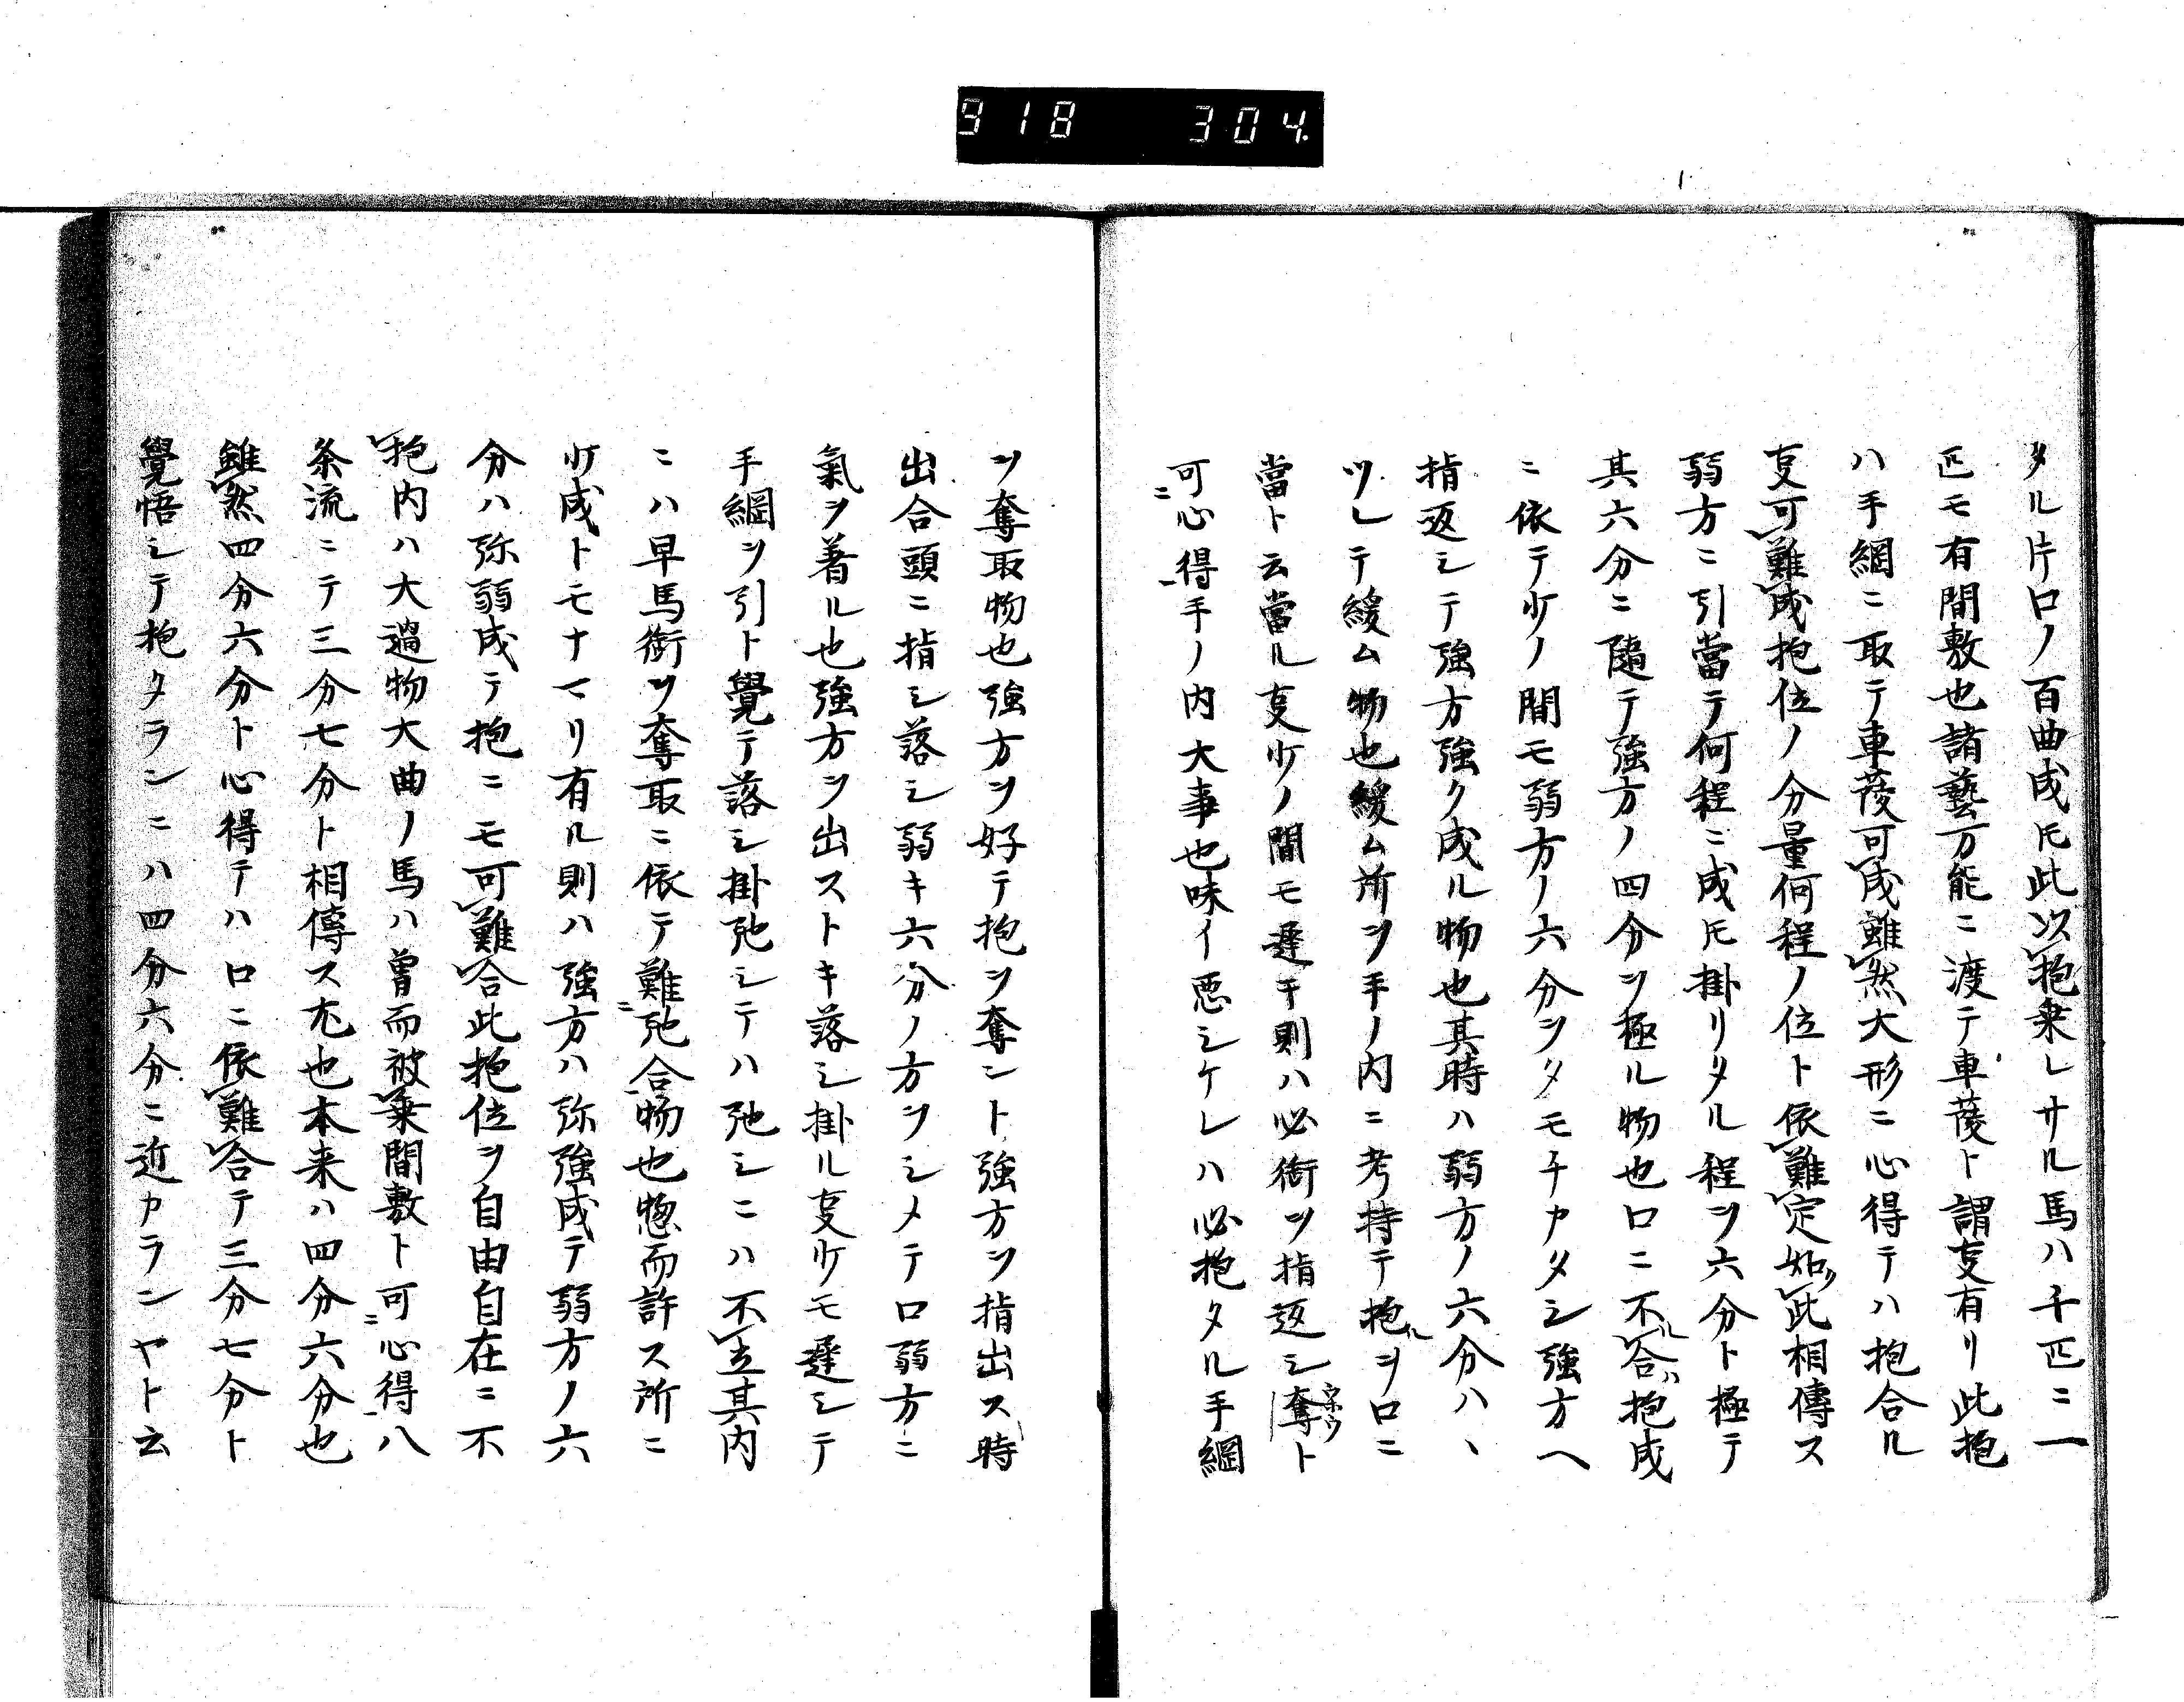 918 304.
タル片口ノ百曲成𪜈此以抱乗レサル馬ハ千匹ニ一
匹モ有間敷也諸藝万能ニ渡テ車䔖ト謂叓有リ此抱
ハ手綱ニ取テ車䔖可成雖然大形ニ心得テハ抱合ル
叓可難成抱位ノ分量何程ノ位ト依難定如此相傳ス
弱方ニ引當テ何程ニ成𪜈掛リタル程ヲ六分ト極テ
其六分ニ隨テ強方ノ四分ヲ極ル物也口ニ不合ルハ抱成
ニ依テ少ノ間モ弱方ノ六分ヲタモチカタシ強方ヘ
指返シテ強方強ク成ル物也其時ハ弱方ノ六分ハ、
ツレテ緩ム物也緩ム所ヲ手ノ内ニ考持テ抱ルヲ口ニ
當ト云當ル叓少ノ間モ遅キ則ハ必銜ヲ指返シ奪ト
可ニ心得手ノ内大事也味イ悪シケレハ必抱タル手綱
ヲ奪取物也強方ヲ好テ抱ヲ奪ント強方ヲ指出ス時
出合頭ニ指シ落シ弱キ六分ノ方ヲシメテ口弱方ニ
氣ヲ著ル也強方ヲ出ストキ落シ掛ル叓少モ遅シテ
手綱ヲ引ト覺テ落シ掛弛シテハ弛シニハ不立其内
ニハ早馬銜ヲ奪取ニ依テ難ニ弛合物也惣而許ス所ニ
少成トモナマリ有ル則ハ強方ハ弥強成テ弱方ノ六
分ハ弥弱成テ抱ニモ可難合此抱位ヲ自由自在ニ不
抱内ハ大過物大曲ノ馬ハ曽而被乗間敷ト可ニ心得八
条流ニテ三分七分ト相傳ス尤也本来ハ四分六分也
雖然四分六分ト心得テハ口ニ依難合テ三分七分ト
覺悟シテ抱タランニハ四分六分ニ近カランヤト云